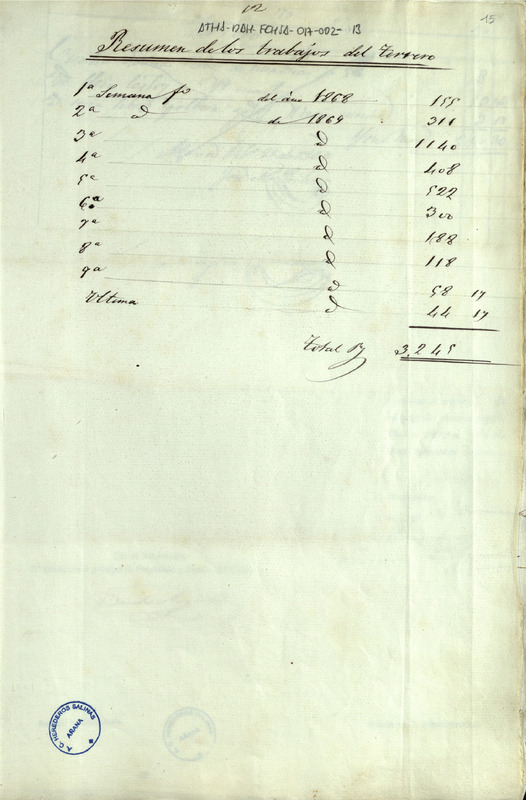 12
15
ATHA-DAH-FCHSA-017-002-13
Resumen de los trabajos del Terrero
1ª Semana fº del año 1868 155
2ª d de 1869 311
3ª d 1140
4ª d 408
5ª d 522
6ª d 300
7ª d 188
8ª d 118
9ª d 58 17
Ultima d 44 17
Total 3,245
A. C. HEREDEROS SALINAS
ARANA